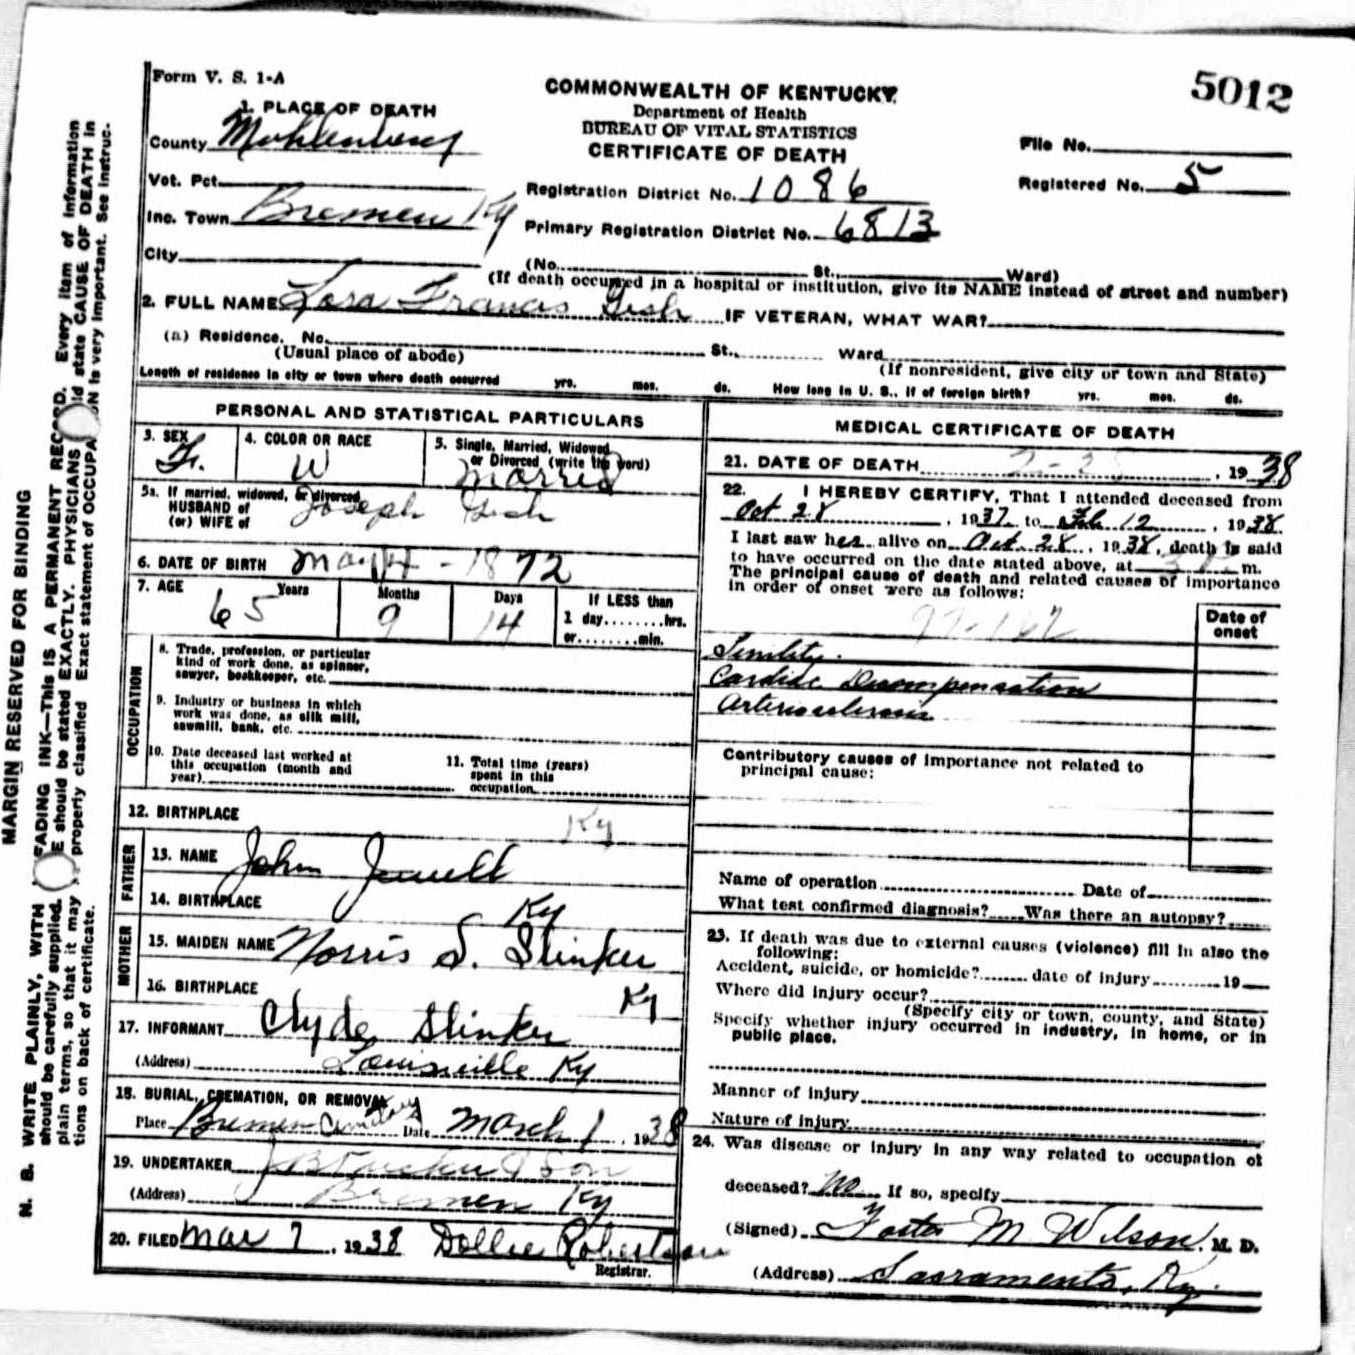 Form V. S. 1-A
5012
COMMONWEALTH OF KENTUCKY
Department of Health
BUREAU OF VITAL STATISTICS
CERTIFICATE OF DEATH
1. PLACE OF DEATH
County Muhlenberg
Vot. Pct.
Inc. Town Bremen Ky
City
File No.
Registered No. 5
Registration District No. 1086
Primary Registration District No. 6813
(No. St. Ward)
(If death occurred in a hospital or institution, give its NAME instead of street and number)
2. FULL NAME Lora Francis Gish IF VETERAN, WHAT WAR?
(a) Residence. No. St. Ward
(Usual place of abode) (If nonresident, give city or town and State)
Length of residence in city or town where death occurred yrs. mos. ds. How long in U. S., if of foreign birth? yrs. mos. ds.
PERSONAL AND STATISTICAL PARTICULARS
3. SEX F. 4. COLOR OR RACE W 5. Single, Married, Widowed
or Divorced (write the word) Married
5a. If married, widowed, or divorced
HUSBAND of
(or) WIFE of Joseph Gish
6. DATE OF BIRTH May 14 - 1872
7. AGE 65 Years 9 Months 14 Days If LESS than
1 day........hrs.
or........min.
OCCUPATION
8. Trade, profession, or particular
kind of work done, as spinner,
sawyer, bookkeeper, etc.
9. Industry or business in which
work was done, as silk mill,
sawmill, bank, etc.
10. Date deceased last worked at
this occupation (month and
year)
11. Total time (years)
spent in this
occupation
12. BIRTHPLACE Ky
FATHER
13. NAME John Jewell
14. BIRTHPLACE Ky
MOTHER
15. MAIDEN NAME Norris S. Slinker
16. BIRTHPLACE Ky
17. INFORMANT Clyde Slinker
(Address) Louisville Ky
18. BURIAL, CREMATION, OR REMOVAL
Place Bremen Cemetery Date March 1, 1938
19. UNDERTAKER & Son
(Address) Bremen Ky
20. FILED Mar 7, 1938 Dollie Robertson
Registrar.
MEDICAL CERTIFICATE OF DEATH
21. DATE OF DEATH 2- , 1938
22. I HEREBY CERTIFY, That I attended deceased from
Oct 28, 1937 to Feb 12, 1938.
I last saw her alive on Oct. 28, 1938, death is said
to have occurred on the date stated above, at m.
The principal cause of death and related causes of importance
in order of onset were as follows:
Date of
onset
Senility.
Cardiac Decompensation
Arteriosclerosis
Contributory causes of importance not related to
principal cause:
Name of operation Date of
What test confirmed diagnosis? Was there an autopsy?
23. If death was due to external causes (violence) fill in also the
following:
Accident, suicide, or homicide? date of injury 19
Where did injury occur?
(Specify city or town, county, and State)
Specify whether injury occurred in industry, in home, or in
public place.
Manner of injury
Nature of injury
24. Was disease or injury in any way related to occupation of
deceased? No If so, specify
(Signed) Foster M Wilson, M. D.
(Address) Sacramento, Ky.
MARGIN RESERVED FOR BINDING
N. B. WRITE PLAINLY, WITH FADING INK—THIS IS A PERMANENT RECORD. Every item of information
should be carefully supplied. E should be stated EXACTLY. PHYSICIANS ld state CAUSE OF DEATH in
plain terms, so that it may properly classified. Exact statement of OCCUPA N is very important. See instruc-
tions on back of certificate.